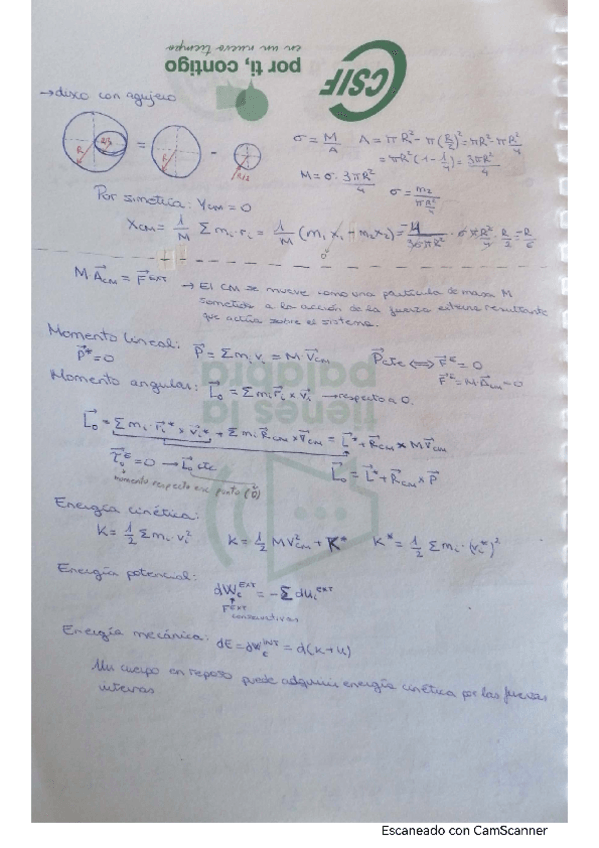 CSIF
por ti, contigo
en un nuevo tiempo
→ disco con agujero
R R/2 = R - R/2
σ = M/A A = πR² - π(R/2)² = πR² - πR²/4
= πR²(1 - 1/4) = 3πR²/4
M = σ · 3πR²/4 σ = m₂/(πR²/4)
Por simetría: Y_CM = 0
X_CM = 1/M Σ mᵢ · rᵢ = 1/M (m₁ x₁ + m₂ x₂) = -4/(3σπR²) · σ πR²/4 · R/2 = R/6
0
M A⃗_CM = F⃗^EXT → El CM se mueve como una partícula de masa M
sometida a la acción de la fuerza externa resultante
que actúa sobre el sistema.
Momento lineal: P⃗ = Σ mᵢ vᵢ = M V⃗_CM P⃗ cte ⟺ F⃗^E = 0
P⃗* = 0 F⃗^E = M A⃗_CM = 0
Momento angular: L⃗₀ = Σ mᵢ r⃗ᵢ × v⃗ᵢ → respecto a O.
tienes la
palabra
L⃗₀ = Σ mᵢ · r⃗ᵢ* × v⃗ᵢ* + Σ mᵢ R⃗_CM × V⃗_CM = L⃗* + R⃗_CM × M V⃗_CM
τ⃗₀^E = 0 → L⃗₀ cte L⃗₀ = L⃗* + R⃗_CM × P⃗
momento respecto ese punto (O)
Energía cinética:
K = 1/2 Σ mᵢ · vᵢ² K = 1/2 M V²_CM + K* K* = 1/2 Σ mᵢ · (vᵢ*)²
Energía potencial:
dW_c^EXT = -Σ duᵢ^EXT
F^EXT
conservativas
Energía mecánica: dE = dW_c^INT = d(K + U)
Un cuerpo en reposo puede adquirir energía cinética por las fuerzas
internas
Escaneado con CamScanner